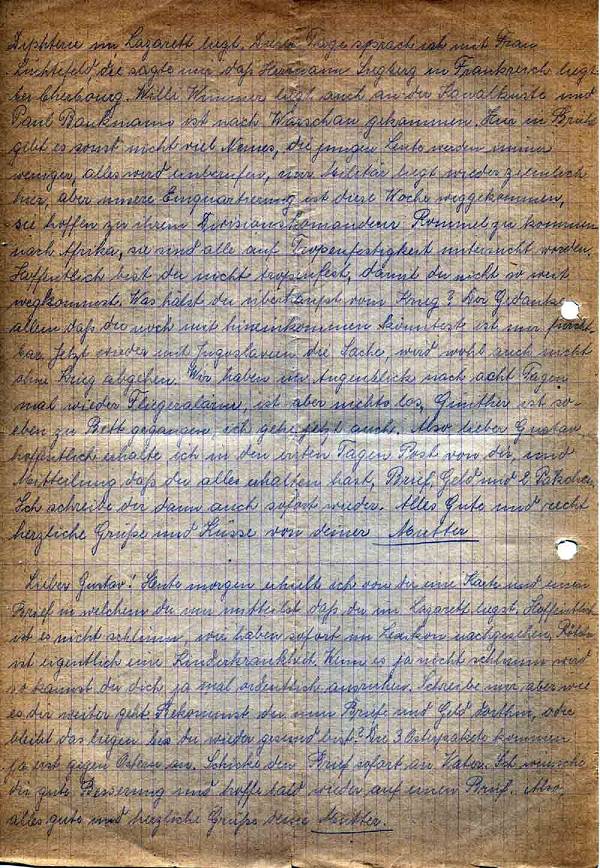 Diphterie im Lazarett liegt. Diese Tage sprach ich mit Frau
Lichtefeld die sagte mir daß Hermann Siegberg in Frankreich liegt
bei Cherbourg. Willi Wimmer liegt auch an der Kanalküste und
Paul Bankmann ist nach Warschau gekommen. Hier in Brühl
gibt es sonst nicht viel Neues, die jungen Leute werden immer
weniger, alles wird einberufen, Militär liegt wieder ziemlich
hier, aber unsere Einquartierung ist diese Woche weggekommen,
sie hoffen zu ihrem Divisionskomandeur Rommel zu kommen
nach Afrika, sie sind alle auf Tropenfestigkeit untersucht worden.
Hoffentlich bist du nicht tropenfest, damit du nicht so weit
wegkommst. Was hälst du überhaupt vom Krieg? Der Gedanke
allein daß du noch mit hineinkommen könntest ist mir furcht-
bar. Jetzt wieder mit Jugoslavien die Sache, wird wohl auch nicht
ohne Krieg abgehen. Wir haben im Augenblick nach acht Tagen
mal wieder Fliegeralarm, ist aber nichts los, Günther ist so-
eben zu Bett gegangen, ich gehe jetzt auch. Also lieber Gustav
hoffentlich erhalte ich in den ersten Tagen Post von dir, und
Mitteilung daß du alles erhalten hast, Brief, Geld und 2 Päckchen.
Ich schreibe dir dann auch sofort wieder. Alles Gute und recht
herzliche Grüße und Küsse von deiner Mutter
Lieber Gustav! Heute morgen erhielt ich von dir eine Karte und einen
Brief in welchem du mir mitteilst daß du im Lazarett liegst, Hoffentlich
ist es nicht schlimm, wir haben sofort im Lexikon nachgesehen, Röteln
ist eigentlich eine Kinderkrankheit. Wenn es ja nicht schlimm wird
so kannst du dich ja mal ordentlich ausruhen. Schreibe mir aber wie
es dir weiter geht. Bekommst du nun Briefe und Geld dorthin, oder
bleibt das liegen bis du wieder gesund bist? Die 3 Osterpakete kommen
ja erst gegen Ostern an. Schicke den Brief sofort an Vater. Ich wünsche
dir gute Besserung und hoffe bald wieder auf einen Brief. Also
alles gute und herzliche Grüße deine Mutter.